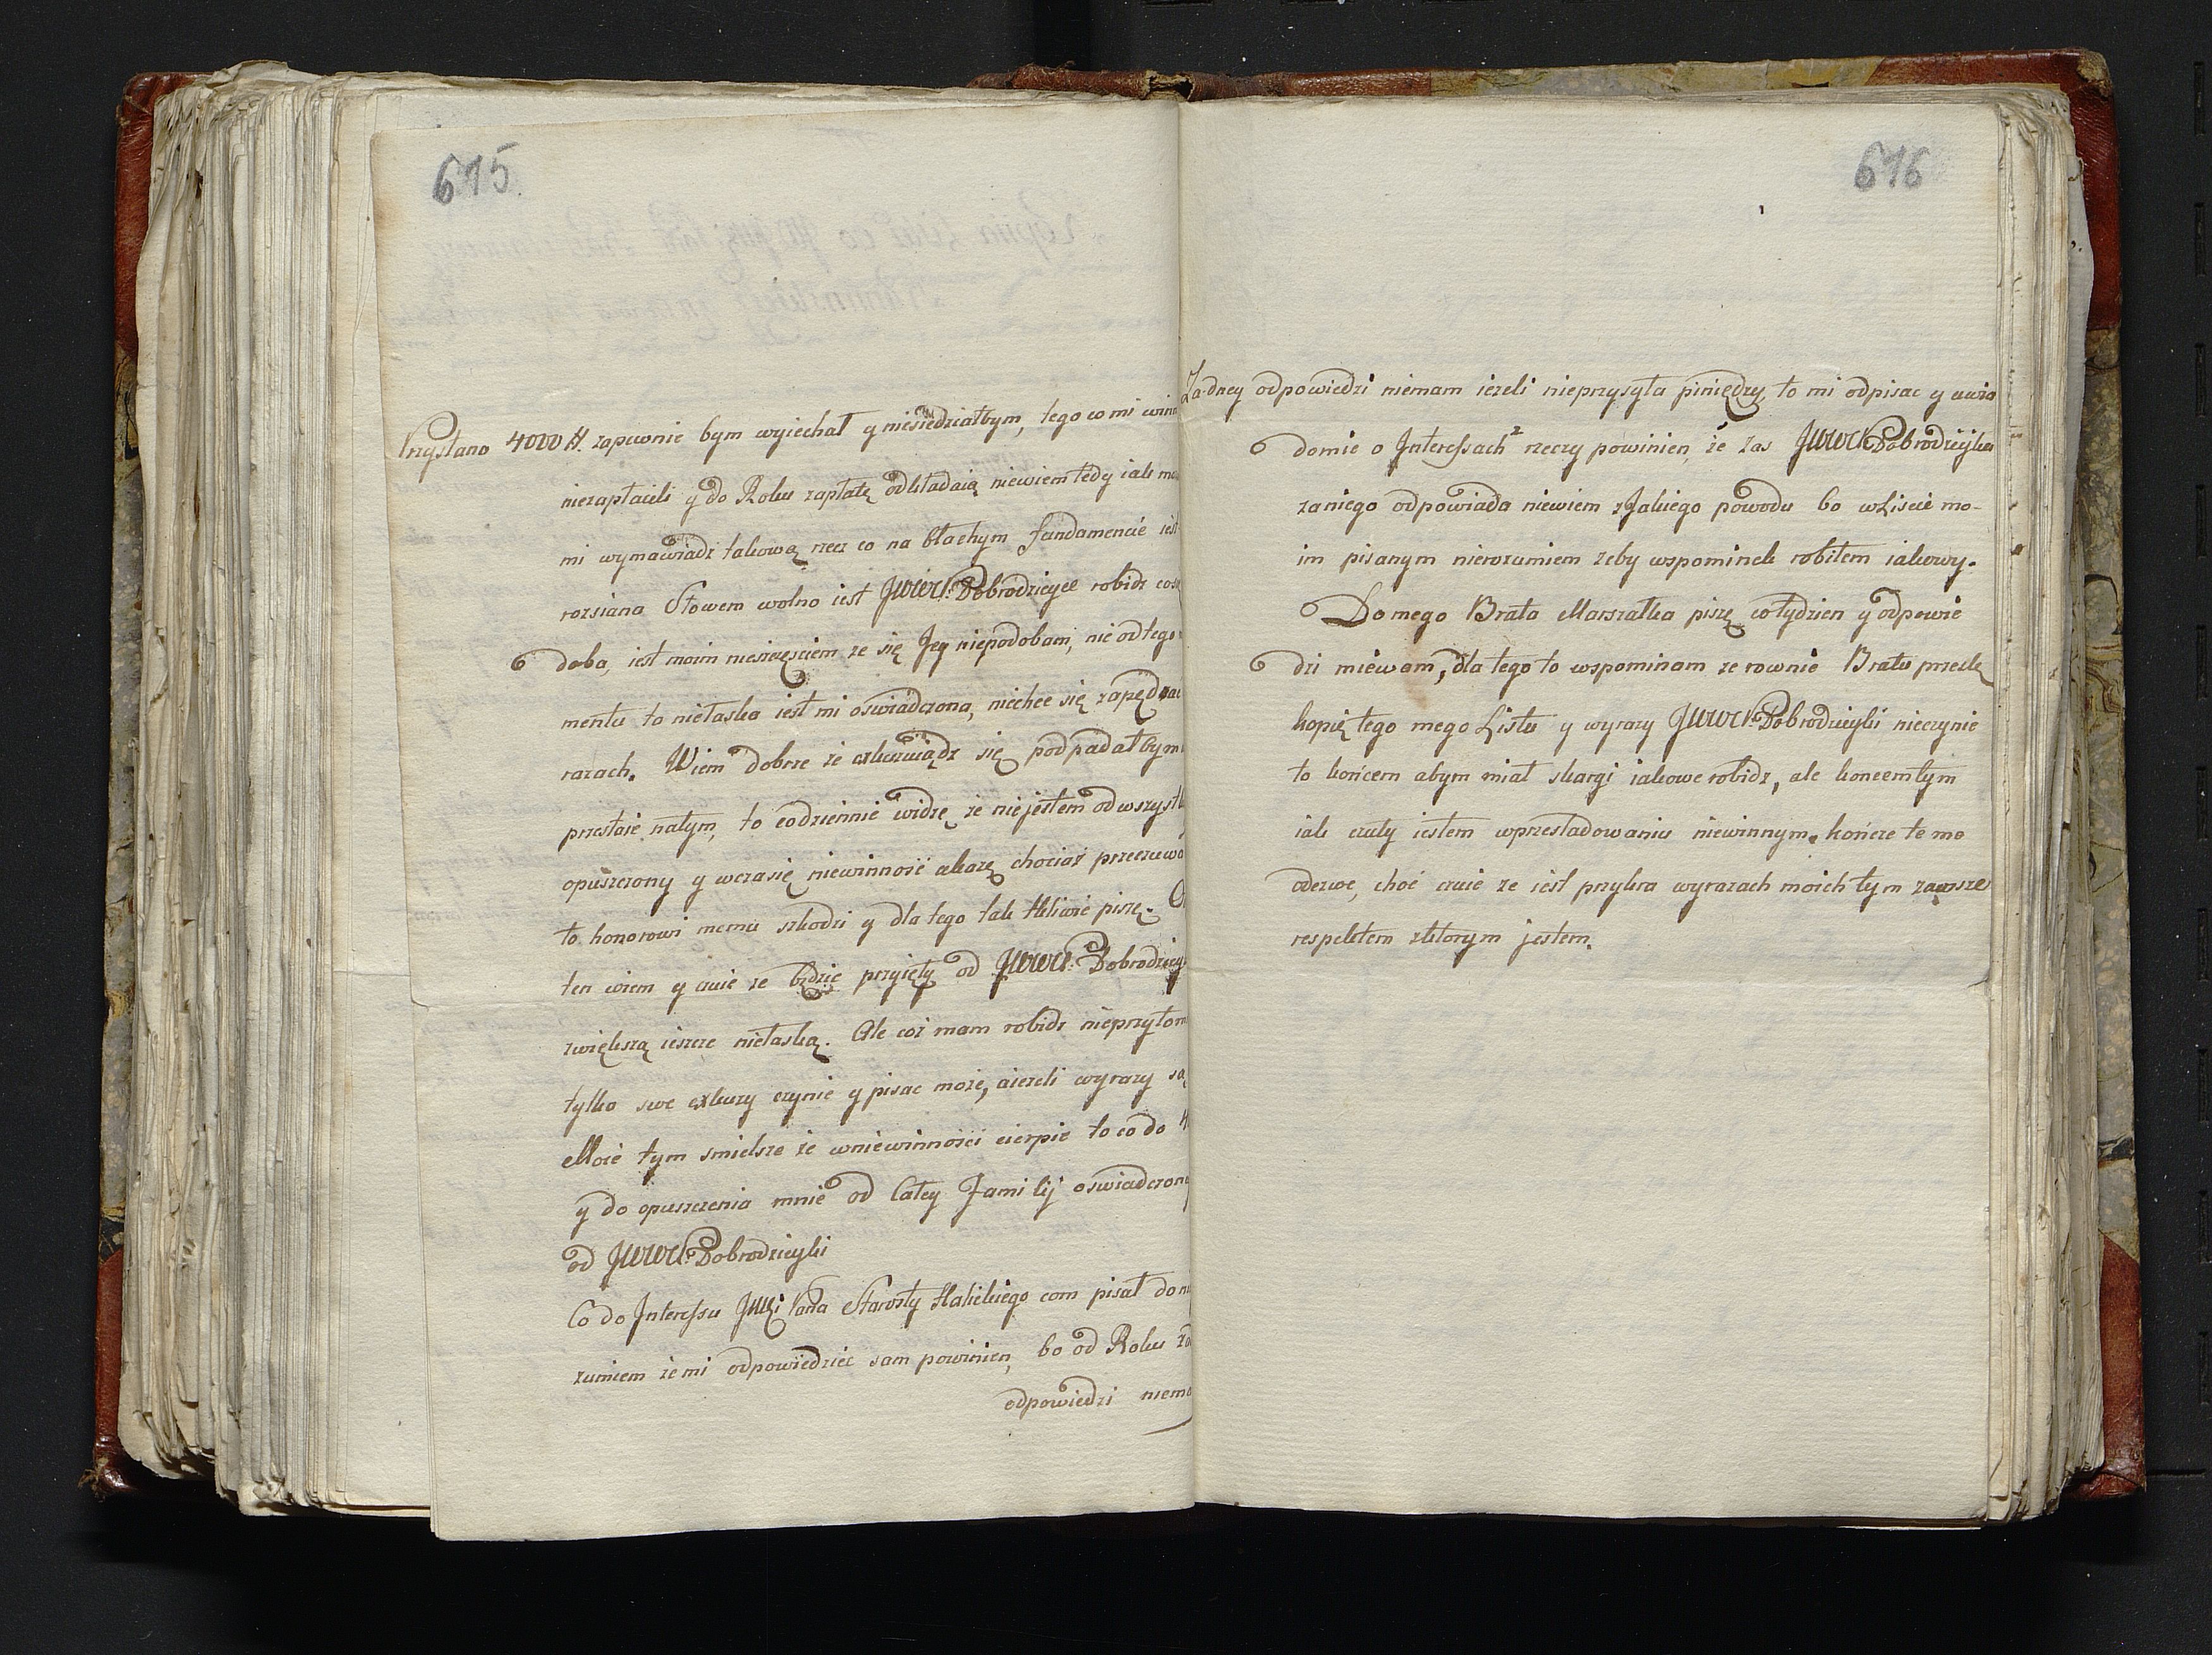 615.
Przysłano 4000 #. zapewnie bym wyiechał y niesiedziałbym, tego co mi winn
niezapłacili y do Roku zapłatę odkładaią niewiem tedy iak mo
mi wymawiadz takową rzecz co na błachym fundamencie iest
rozsiana Słowem wolno iest JWWCK: Dobrodzieyce robidz co
doba, iest moim nieszczęściem ze się Jey niepodobam, nie od tego
mentu to niełaska iest mi oswiadczona, niechce się zapędzac
razach. Wiem dobrze że exkuzuiądz się podpadałbym
przestaie natym, to codziennie widzę że niejestem od wszystk
opuszczony y wczasię niewinność ukarzę chociaż przeczuwa
to honorowi memu szkodzi y dla tego tak tkliwie piszę.
ten wiem y czuie ze będzie przyięty od JWWCK: Dobrodziey
zwiększą ieszcze niełaską. Ale coż mam robidz nieprzytom
tylko swe exkuzy czynie y pisac może, aiezeli wyrazy są
Moie tym smielsze że wniewinności cierpie to co do H
y do opuszczenia mnie od Całey Familij oswiadczone
od JWWCK: Dobrodzieyki
Co do Interessu JWci Pana Starosty Halickiego com pisał do n
zumiem że mi odpowiedziec sam powinien, bo od Roku ża
odpowiedzi niema
616
Żadney odpowiedzi niemam iezeli nieprzysyła piniędzy, to mi odpisac y uwia
domic o Interessach rzeczy powinien, że zas JWWCK Dobrodzieyka
zaniego odpowiada niewiem z Jakiego powodu bo w Liscie mo-
im pisanym nierozumiem zeby wspominek robiłem iakowy.
Do mego Brata Marszałka piszę co tydzien y odpowie
dzi miewam, dla tego to wspominam ze rownie Bratu przeslę
kopię tego mego Listu y wyrazy JWWCK: Dobrodzieyki nieczynie
to końcem abym miał skargi iakowe robidz, ale koncem tym
iak czuły iestem wprzesladowaniu niewinnym. kończe te mo
odezwe, choć czuie ze iest przykra wyrazach moich tym zawsze
respektem zktorym jestem.